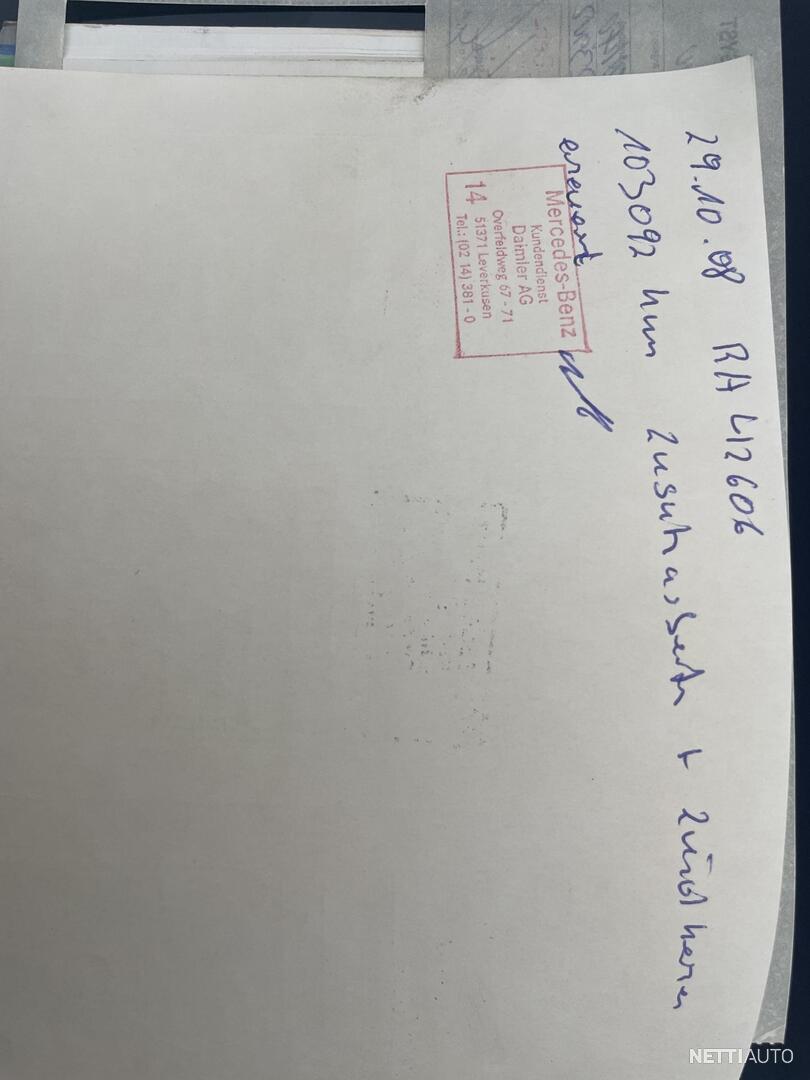 29.10.08 RA L12606
103092 km Zusatzarbeiten + Zündkerzen
erneuert
Mercedes-Benz
Kundendienst
Daimler AG
Overfeldweg 67 - 71
14 51371 Leverkusen
Tel.: (02 14) 381 - 0
NETTIAUTO